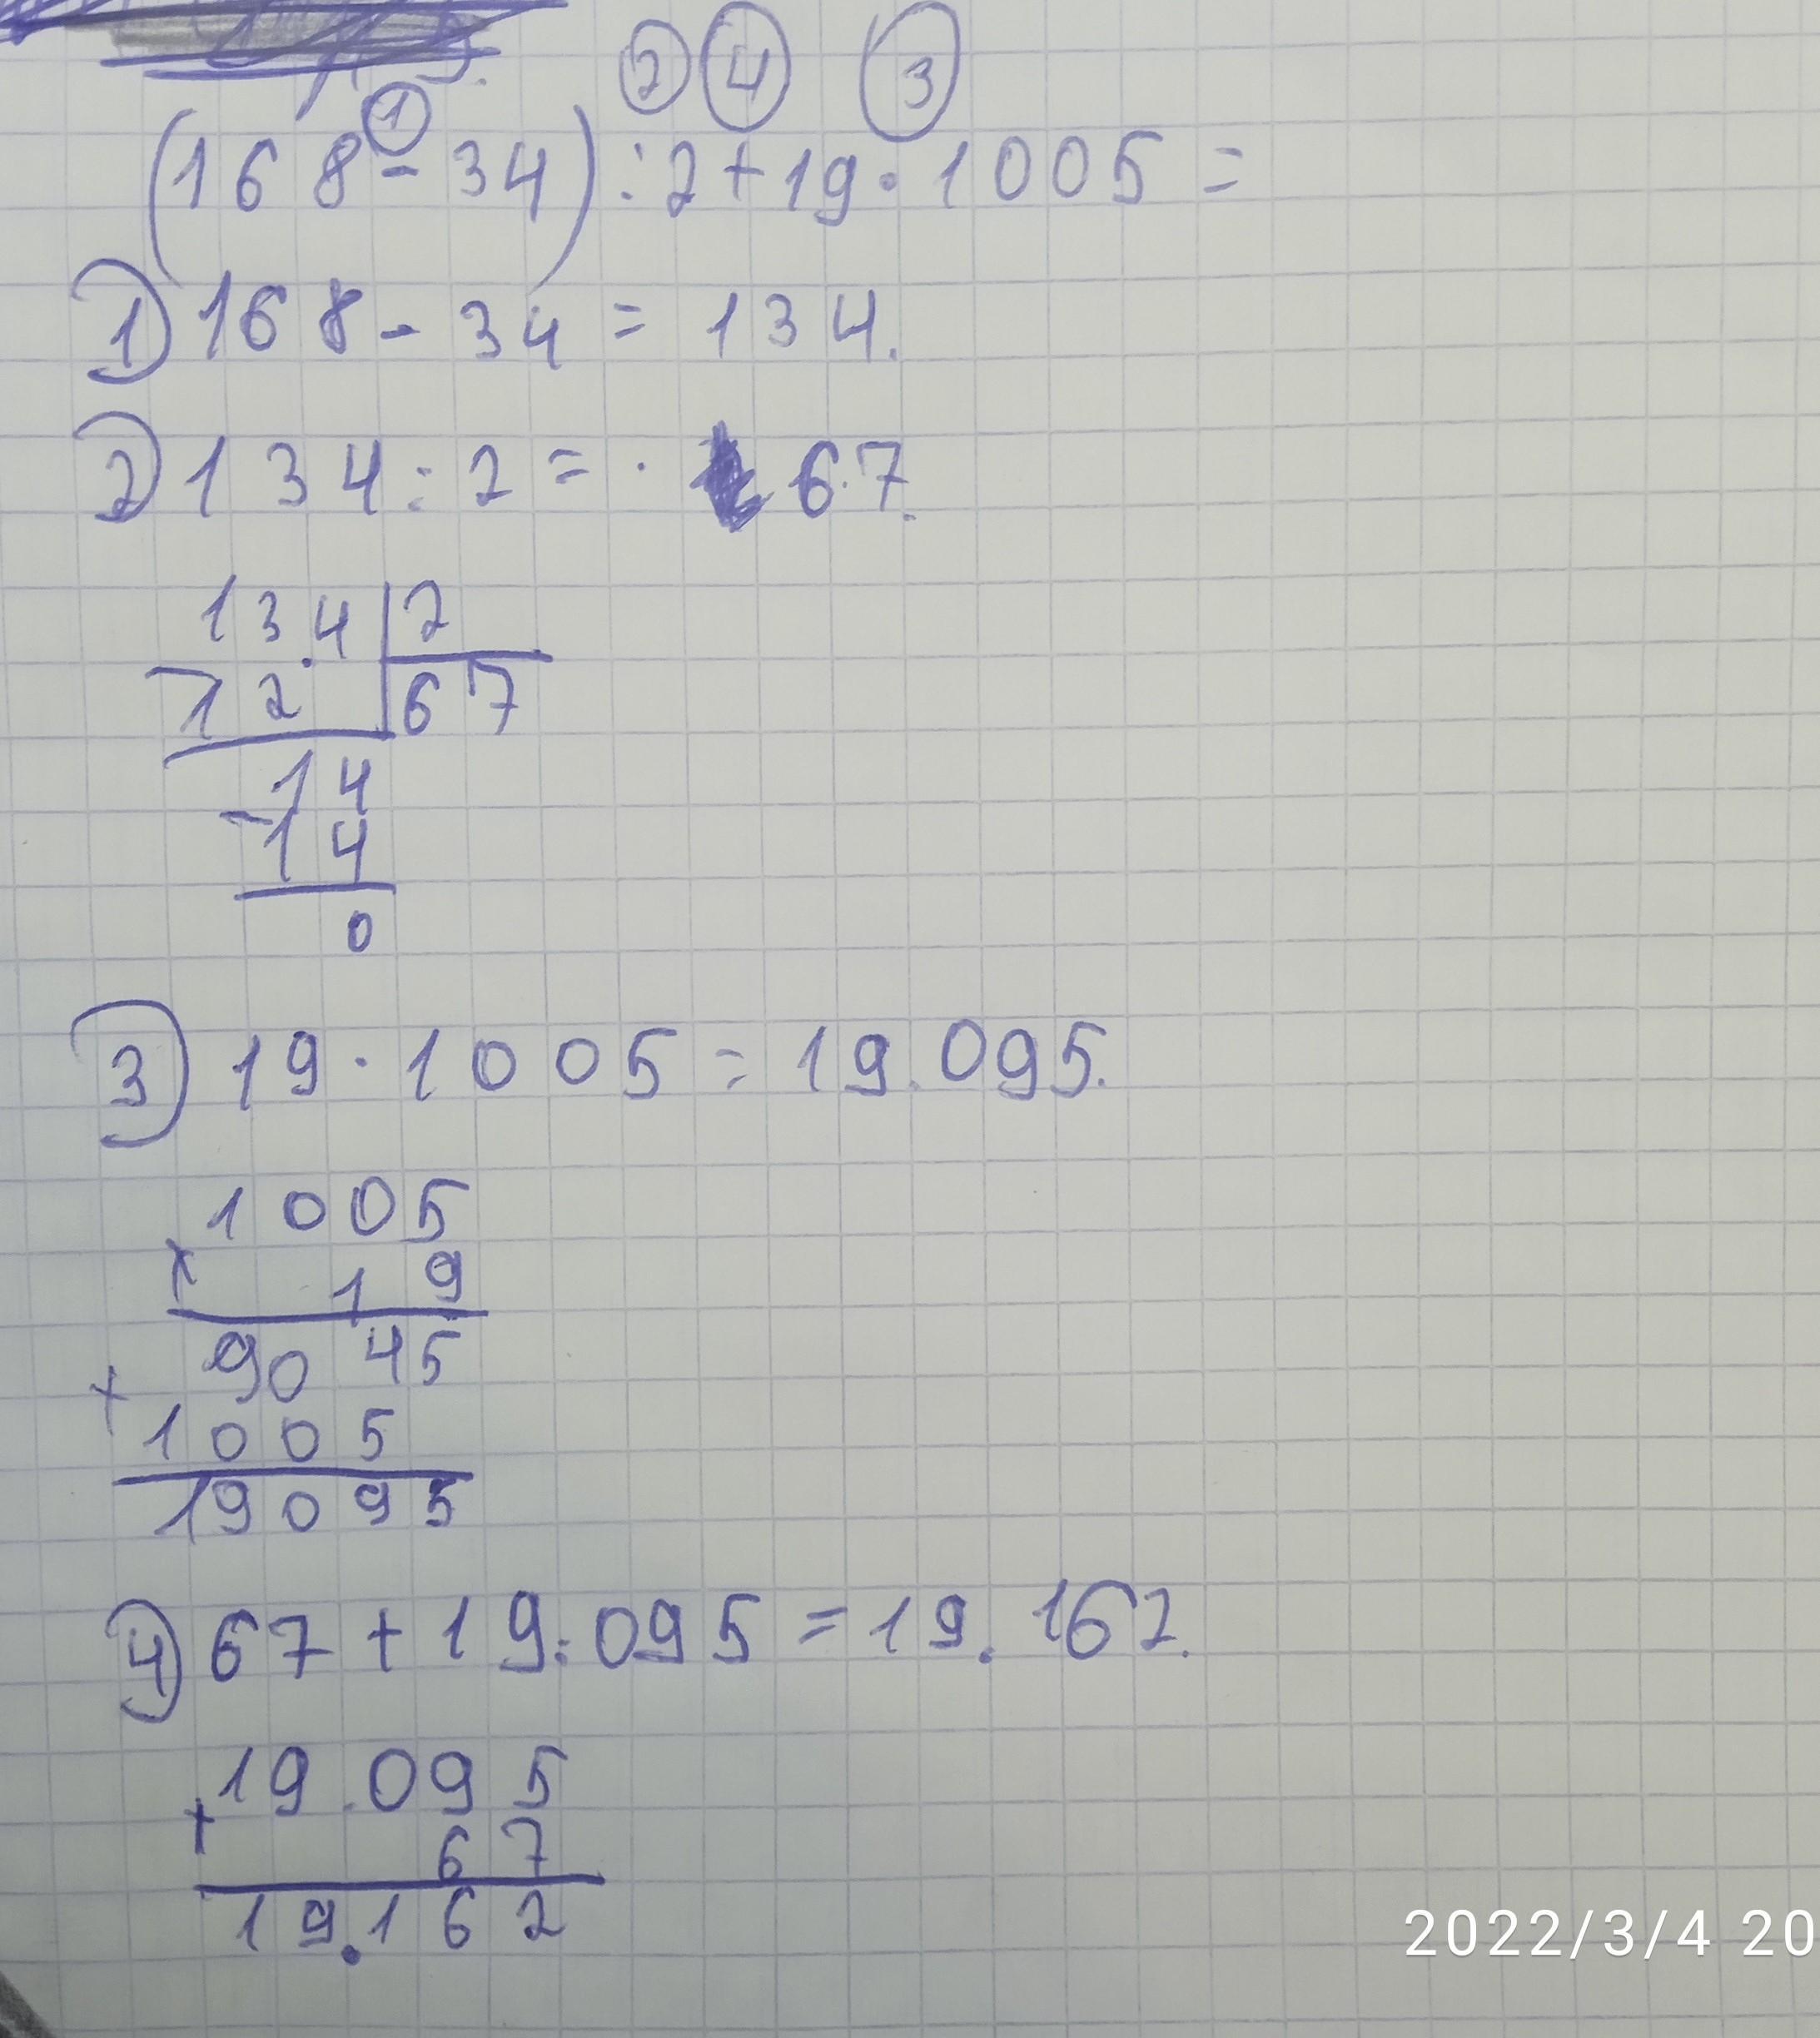 ② ④ ③
①
(168-34):2+19·1005=
1) 168-34=134.
2) 134:2=67.
134|2
-12 67
14
-14
0
3) 19·1005=19.095.
1005
x 19
9045
+
1005
19095
4) 67+19.095=19.162.
19.095
+
67
19.162
2022/3/4 20